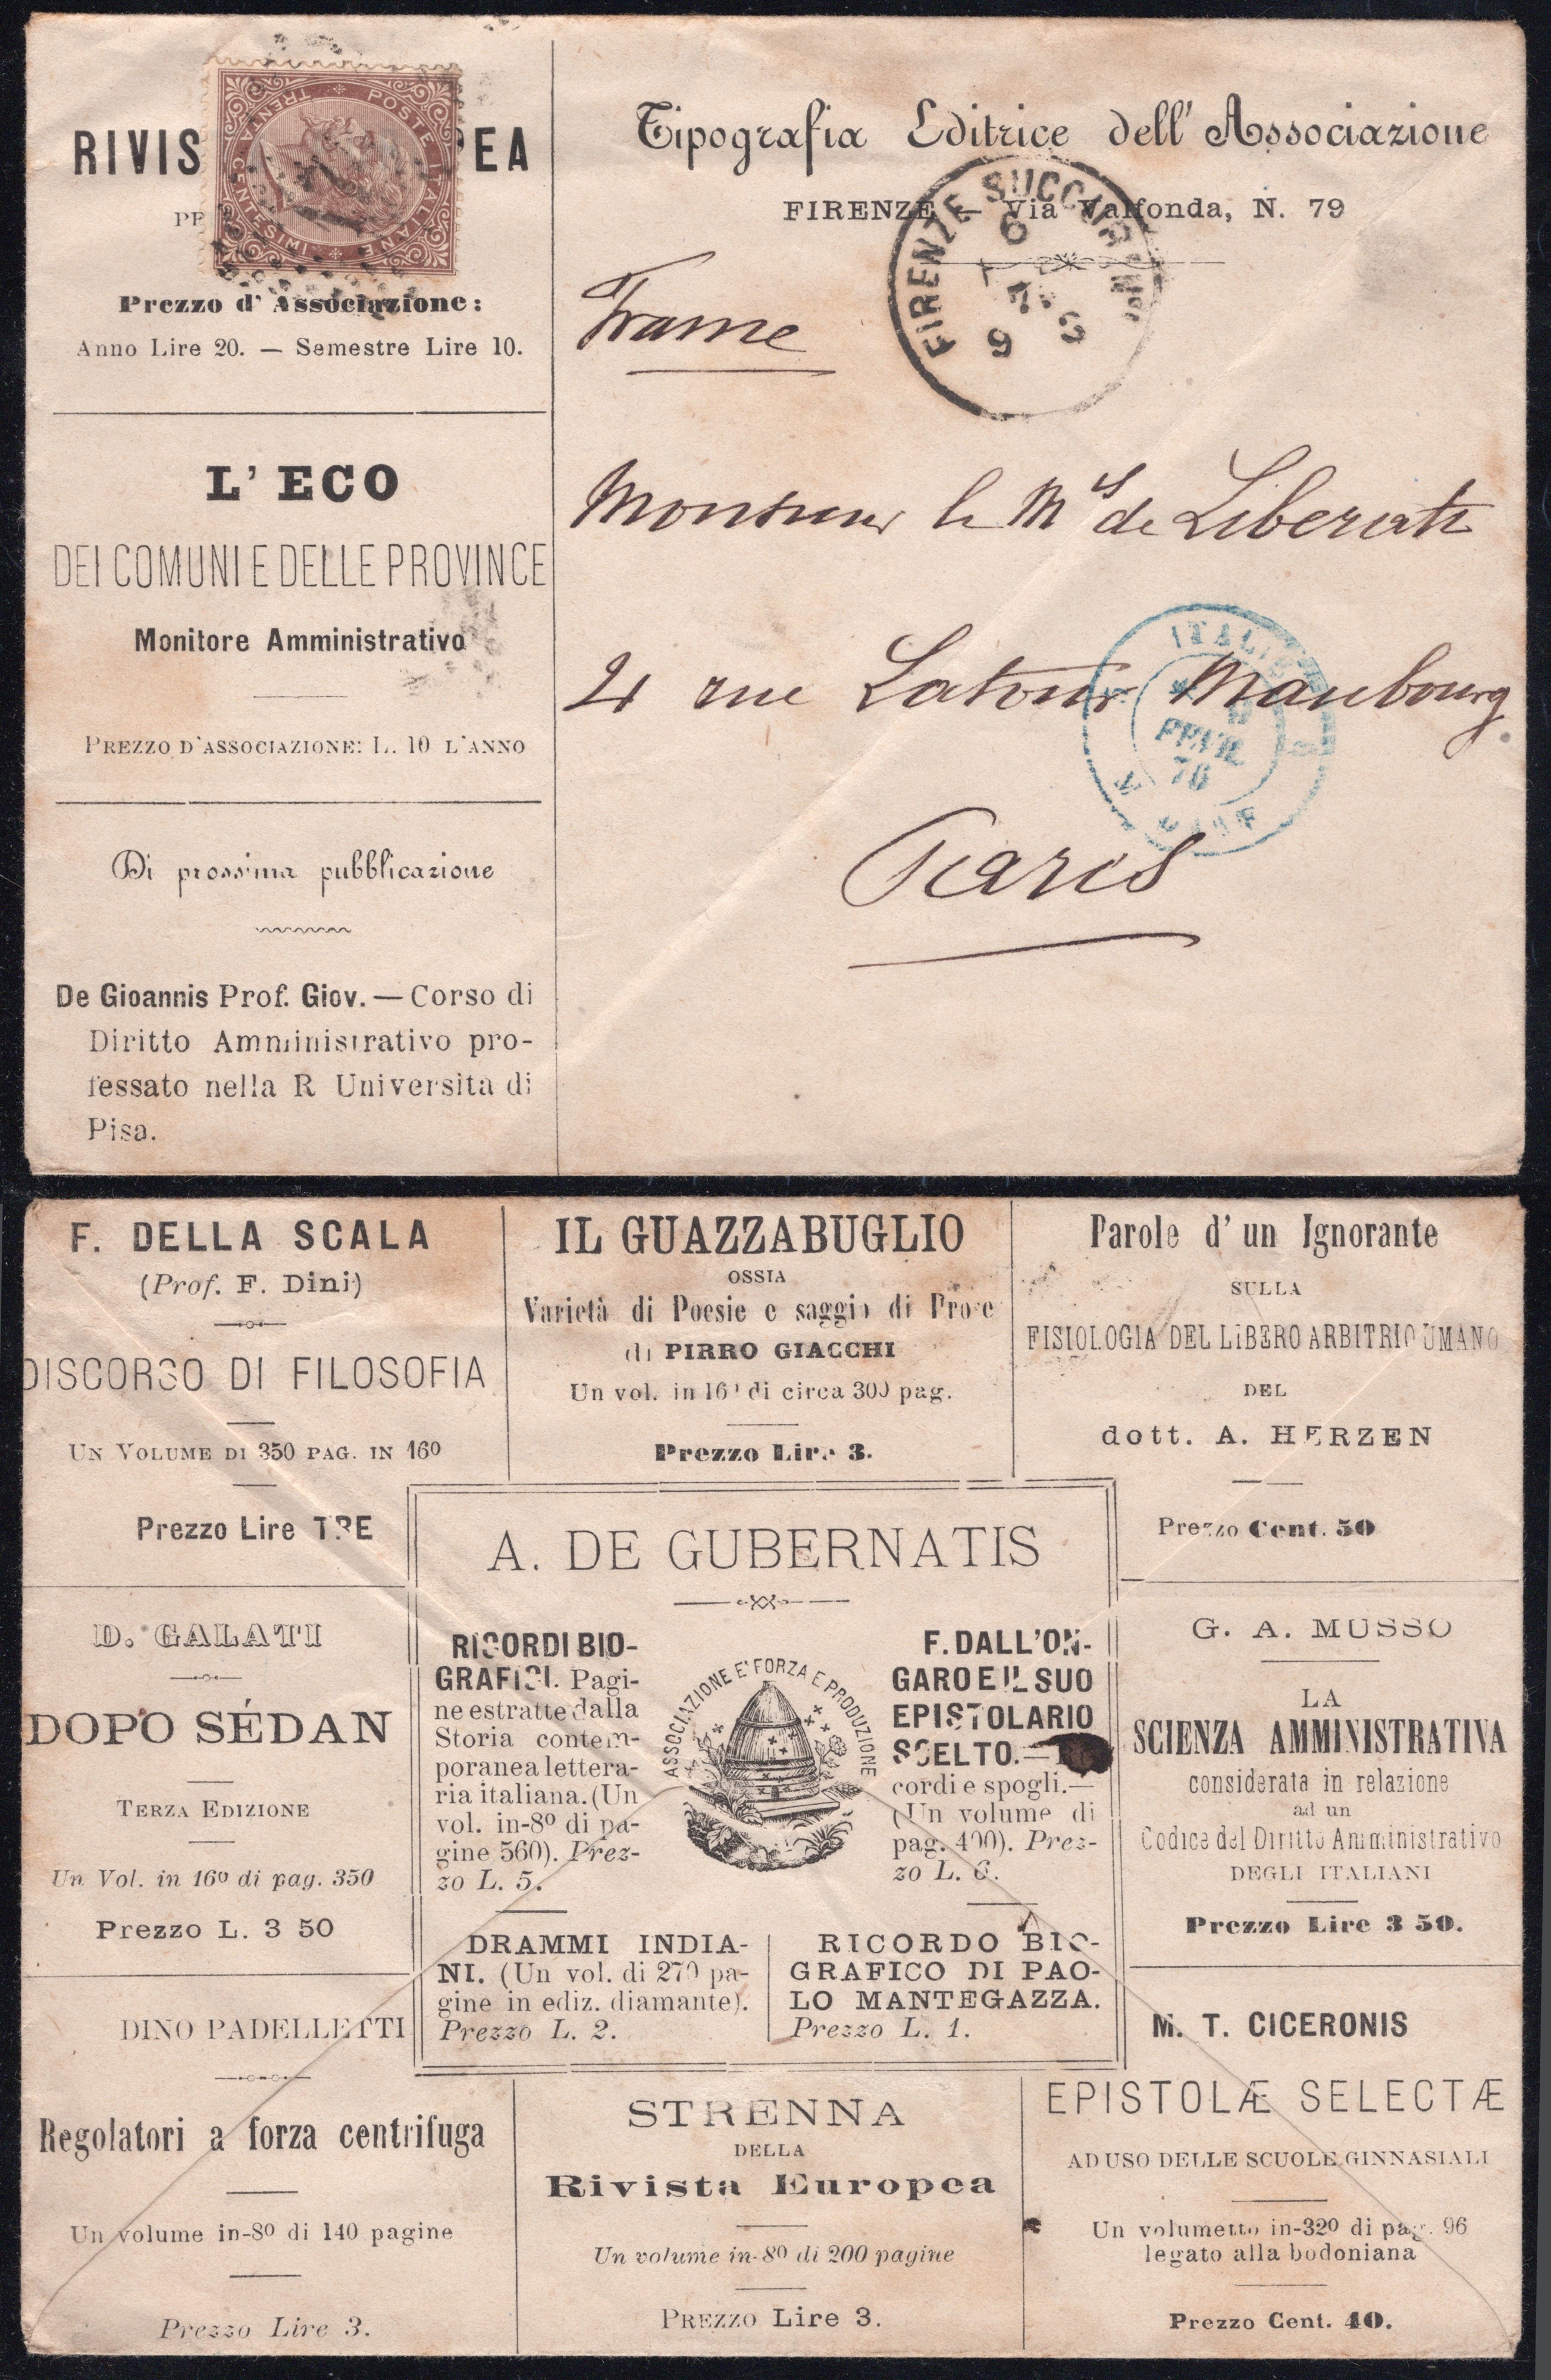 RIVIS PEA
PE
Prezzo d' Associazione:
Anno Lire 20. — Semestre Lire 10.
L' ECO
DEI COMUNI E DELLE PROVINCE
Monitore Amministrativo
PREZZO D'ASSOCIAZIONE: L. 10 L'ANNO
Di prossima pubblicazione
De Gioannis Prof. Giov. — Corso di
Diritto Amministrativo pro-
fessato nella R Universita di
Pisa.
POSTE ITALIANE
CENTESIMI TRENTA
Tipografia Editrice dell' Associazione
FIRENZE — Via Valfonda, N. 79
FIRENZE SUCCUR
6
9 S
Monsieur le Mis de Liberati
21 rue Latour Maubourg
ITALIE
FEVR.
76
Paris
F. DELLA SCALA
(Prof. F. Dini)
DISCORSO DI FILOSOFIA
UN VOLUME DI 350 PAG. IN 16º
Prezzo Lire TRE
IL GUAZZABUGLIO
OSSIA
Varietà di Poesie e saggio di Prose
di PIRRO GIACCHI
Un vol. in 16º di circa 300 pag.
Prezzo Lire 3.
Parole d' un Ignorante
SULLA
FISIOLOGIA DEL LIBERO ARBITRIO UMANO
DEL
dott. A. HERZEN
Prezzo Cent. 50
D. GALATI
DOPO SÉDAN
TERZA EDIZIONE
Un Vol. in 16º di pag. 350
Prezzo L. 3 50
A. DE GUBERNATIS
RICORDI BIO-
GRAFICI. Pagi-
ne estratte dalla
Storia contem-
poranea lettera-
ria italiana. (Un
vol. in-8º di pa-
gine 560). Prez-
zo L. 5.
ASSOCIAZIONE E' FORZA E PRODUZIONE
F. DALL'ON-
GARO E IL SUO
EPISTOLARIO
SCELTO.—
cordi e spogli.—
(Un volume di
pag. 400). Prez-
zo L. 6.
DRAMMI INDIA-
NI. (Un vol. di 270 pa-
gine in ediz. diamante).
Prezzo L. 2.
RICORDO BIO-
GRAFICO DI PAO-
LO MANTEGAZZA.
Prezzo L. 1.
G. A. MUSSO
LA
SCIENZA AMMINISTRATIVA
considerata in relazione
ad un
Codice del Diritto Amministrativo
DEGLI ITALIANI
Prezzo Lire 3 50.
DINO PADELLETTI
Regolatori a forza centrifuga
Un volume in-8º di 140 pagine
Prezzo Lire 3.
STRENNA
DELLA
Rivista Europea
Un volume in-8º di 200 pagine
PREZZO Lire 3.
M. T. CICERONIS
EPISTOLÆ SELECTÆ
AD USO DELLE SCUOLE GINNASIALI
Un volumetto in-32º di pag. 96
legato alla bodoniana
Prezzo Cent. 40.